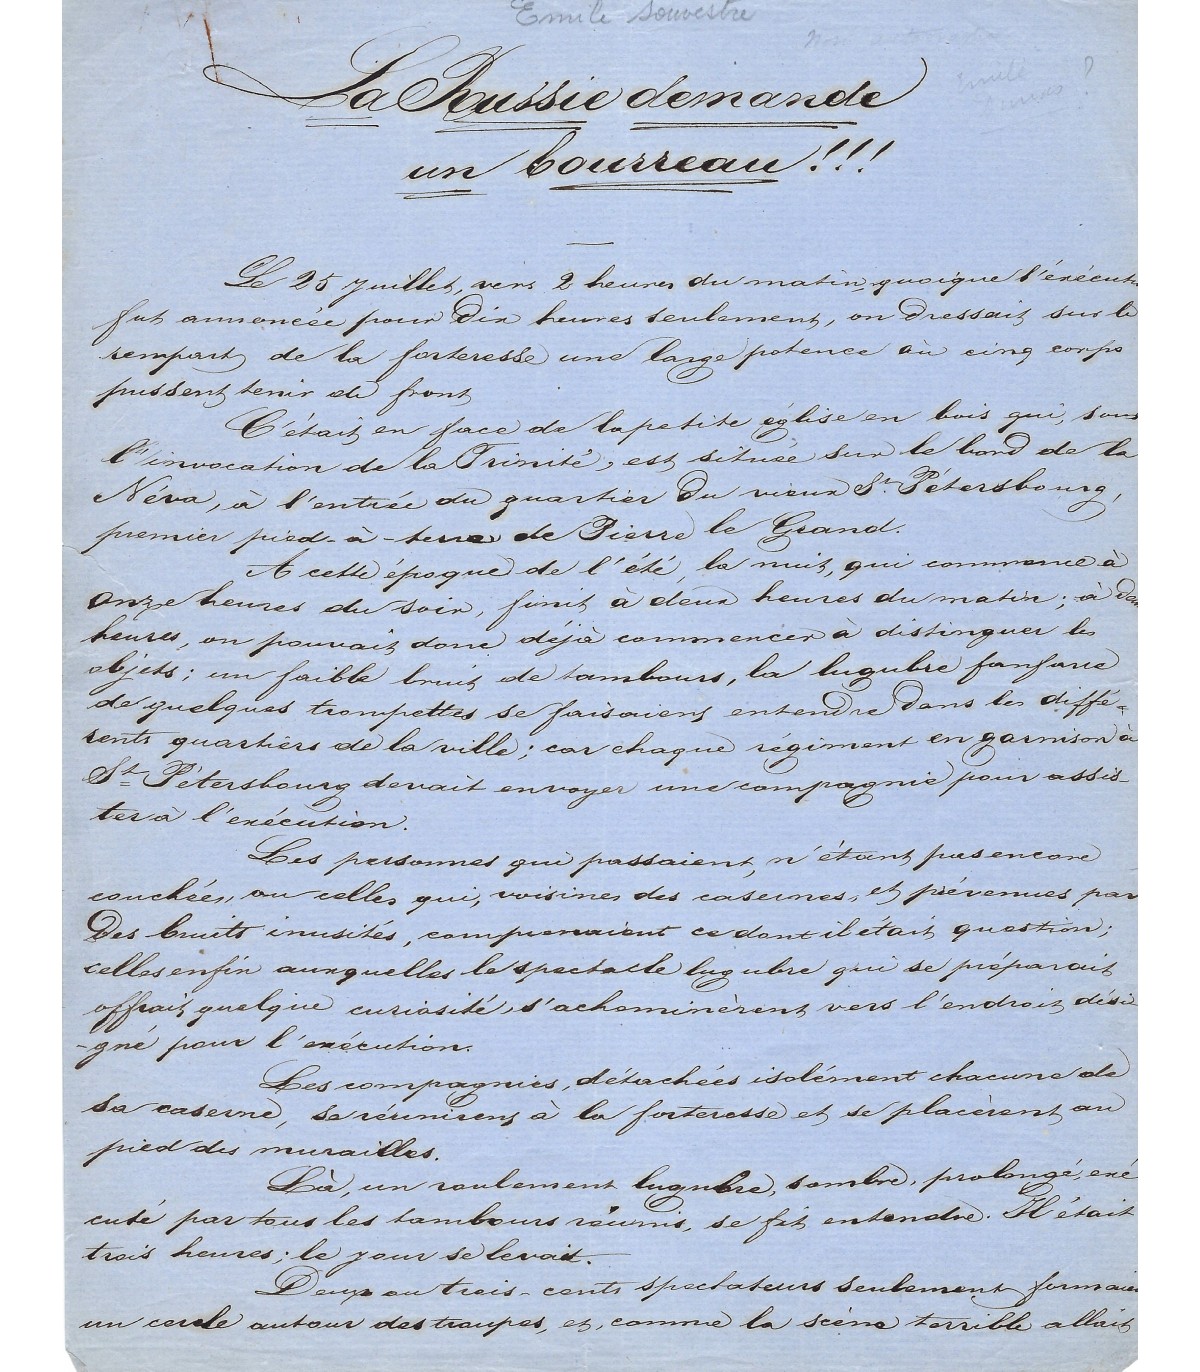 Emile Souvestre
La Russie demande
un bourreau!!!
Le 25 juillet, vers 2 heures du matin, quoique l'exécuti
fut annoncée pour dix heures seulement, on dressait sur le
rempart de la forteresse une large potence où cinq corps
pussent tenir de front
C'était en face de la petite église en bois qui, sous
l'invocation de la Trinité, est située sur le bord de la
Néva, à l'entrée du quartier du vieux St. Pétersbourg,
premier pied-à-terre de Pierre le Grand.
A cette époque de l'été, la nuit, qui commence à
onze heures du soir, finit à deux heures du matin; à deu
heures, on pouvait donc déjà commencer à distinguer les
objets; un faible bruit de tambours, la lugubre fanfare
de quelques trompettes se faisaient entendre dans les diffé-
rents quartiers de la ville; car chaque régiment en garnison à
St. Pétersbourg devait envoyer une compagnie pour assis-
ter à l'exécution.
Les personnes qui passaient, n'étant pas encore
couchées, ou celles qui, voisines des casernes, et prévenues par
des bruits inusités, comprenaient ce dont il était question;
celles enfin auxquelles le spectacle lugubre qui se préparait
offrait quelque curiosité, s'acheminèrent vers l'endroit dési
-gné pour l'exécution.
Les compagnies, détachées isolément chacune de
sa caserne, se réunirent à la forteresse et se placèrent au
pied des murailles.
Là, un roulement lugubre, sombre, prolongé, exé
cuté par tous les tambours réunis, se fit entendre. Il était
trois heures; le jour se levait.
Deux ou trois-cents spectateurs seulement formaien
un cercle autour des troupes, et, comme la scène terrible allait